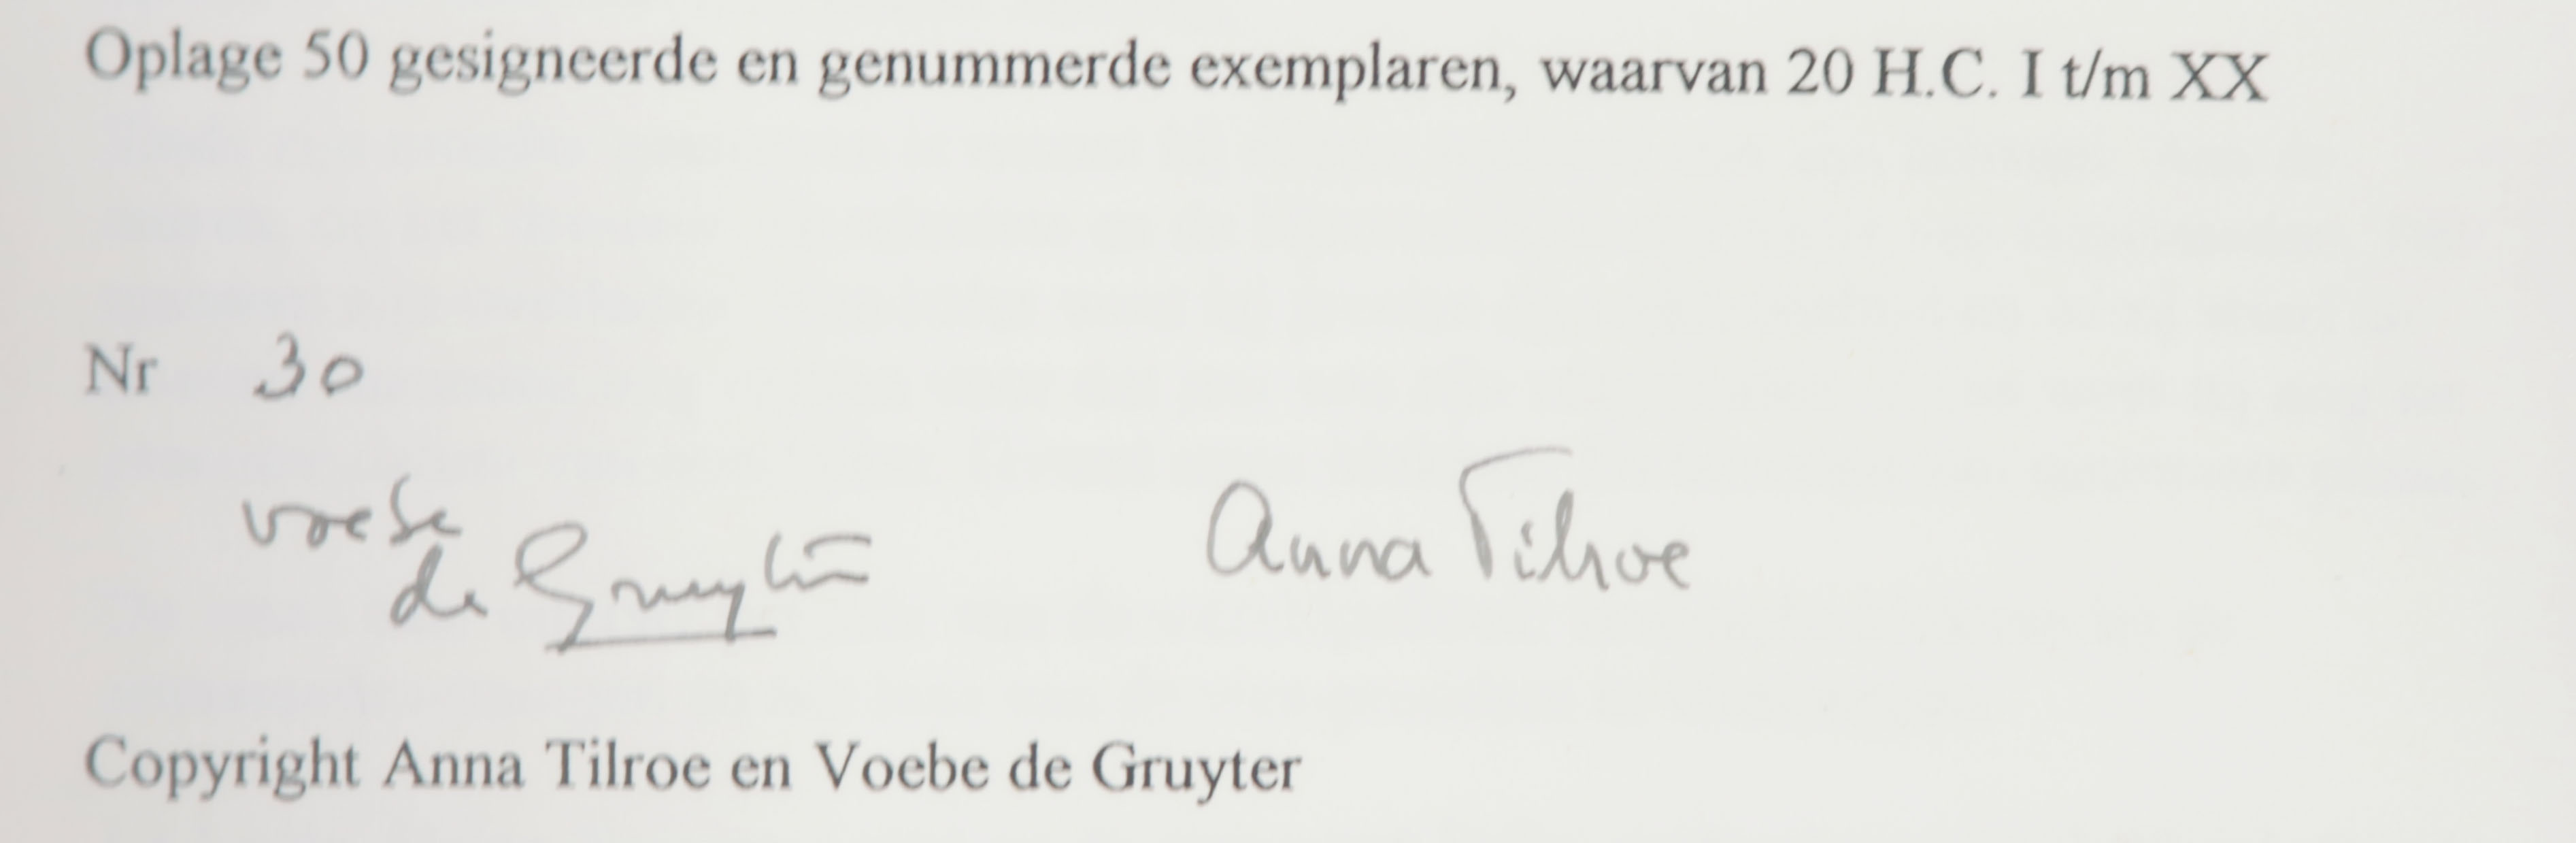 Oplage 50 gesigneerde en genummerde exemplaren, waarvan 20 H.C. I t/m XX
Nr 30
Voebe
de Gruyter
Anna Tilroe
Copyright Anna Tilroe en Voebe de Gruyter